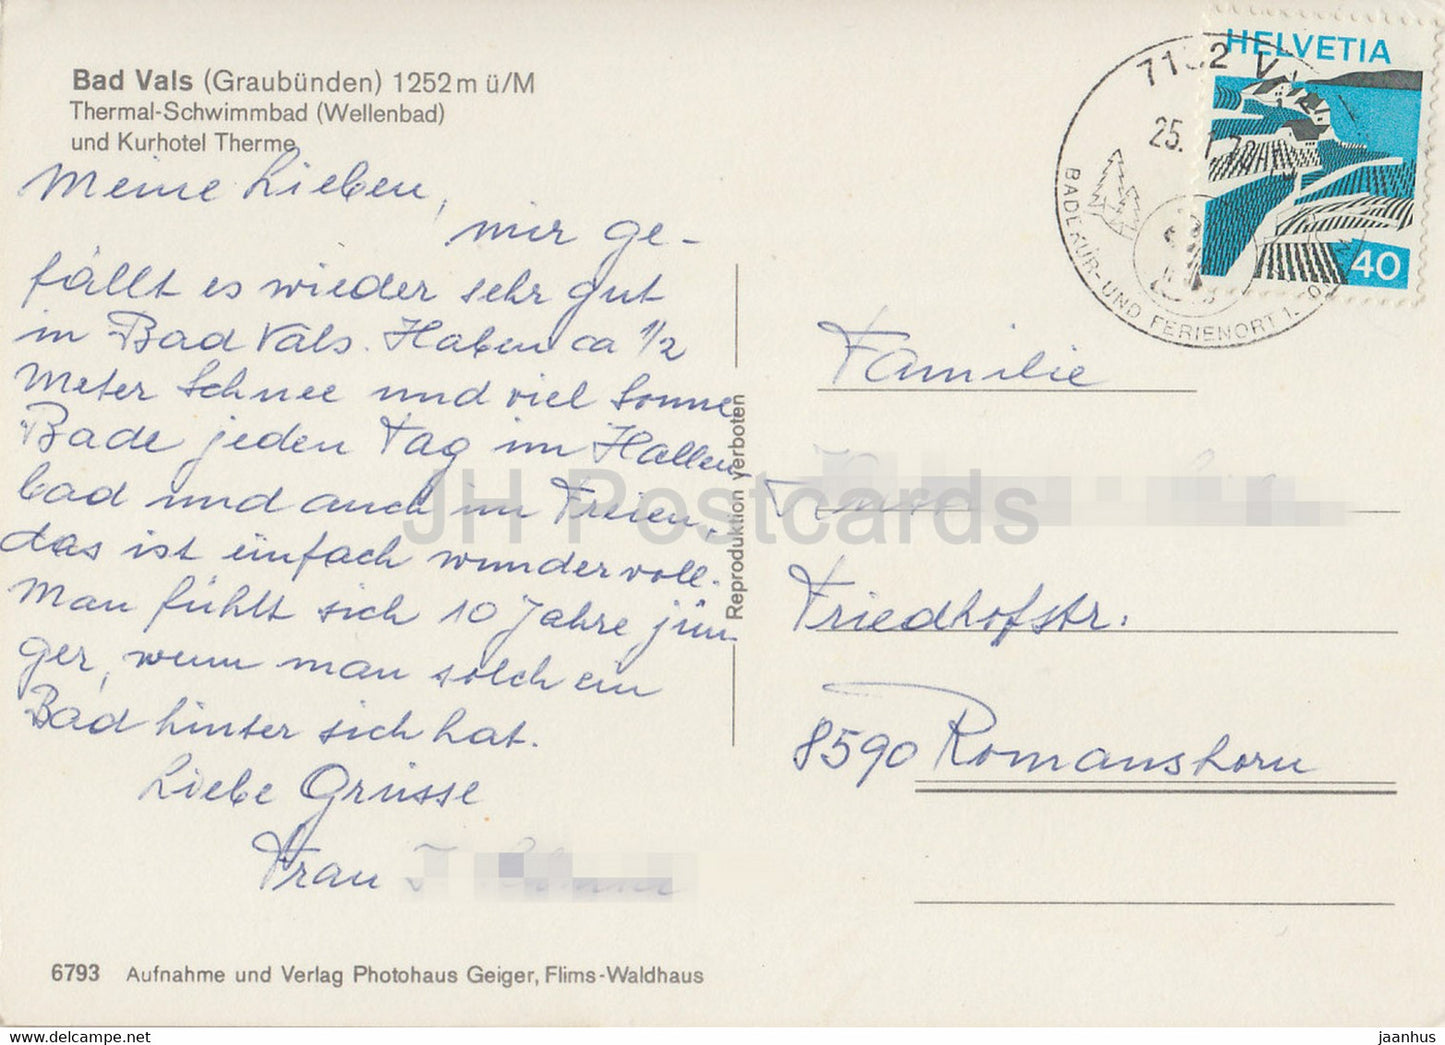 Bad Vals (Graubünden) 1252 m ü/M
Thermal-Schwimmbad (Wellenbad)
und Kurhotel Therme
Meine Lieben,
mir ge-
fällt es wieder sehr gut
in Bad Vals. Haben ca 1/2
Meter Schnee und viel Sonne
Bade jeden Tag im Hallen-
bad und auch im Freien,
das ist einfach wundervoll.
Man fühlt sich 10 Jahre jün-
ger, wenn man solch ein
Bad hinter sich hat.
Liebe Grüsse
Frau
6793 Aufnahme und Verlag Photohaus Geiger, Flims-Waldhaus
Reproduktion verboten
HELVETIA
40
25.
BADEKUR- UND FERIENORT
Familie
Friedhofstr.
8590 Romanshorn
JH Postcards
www.delcampe.net
jaanhus